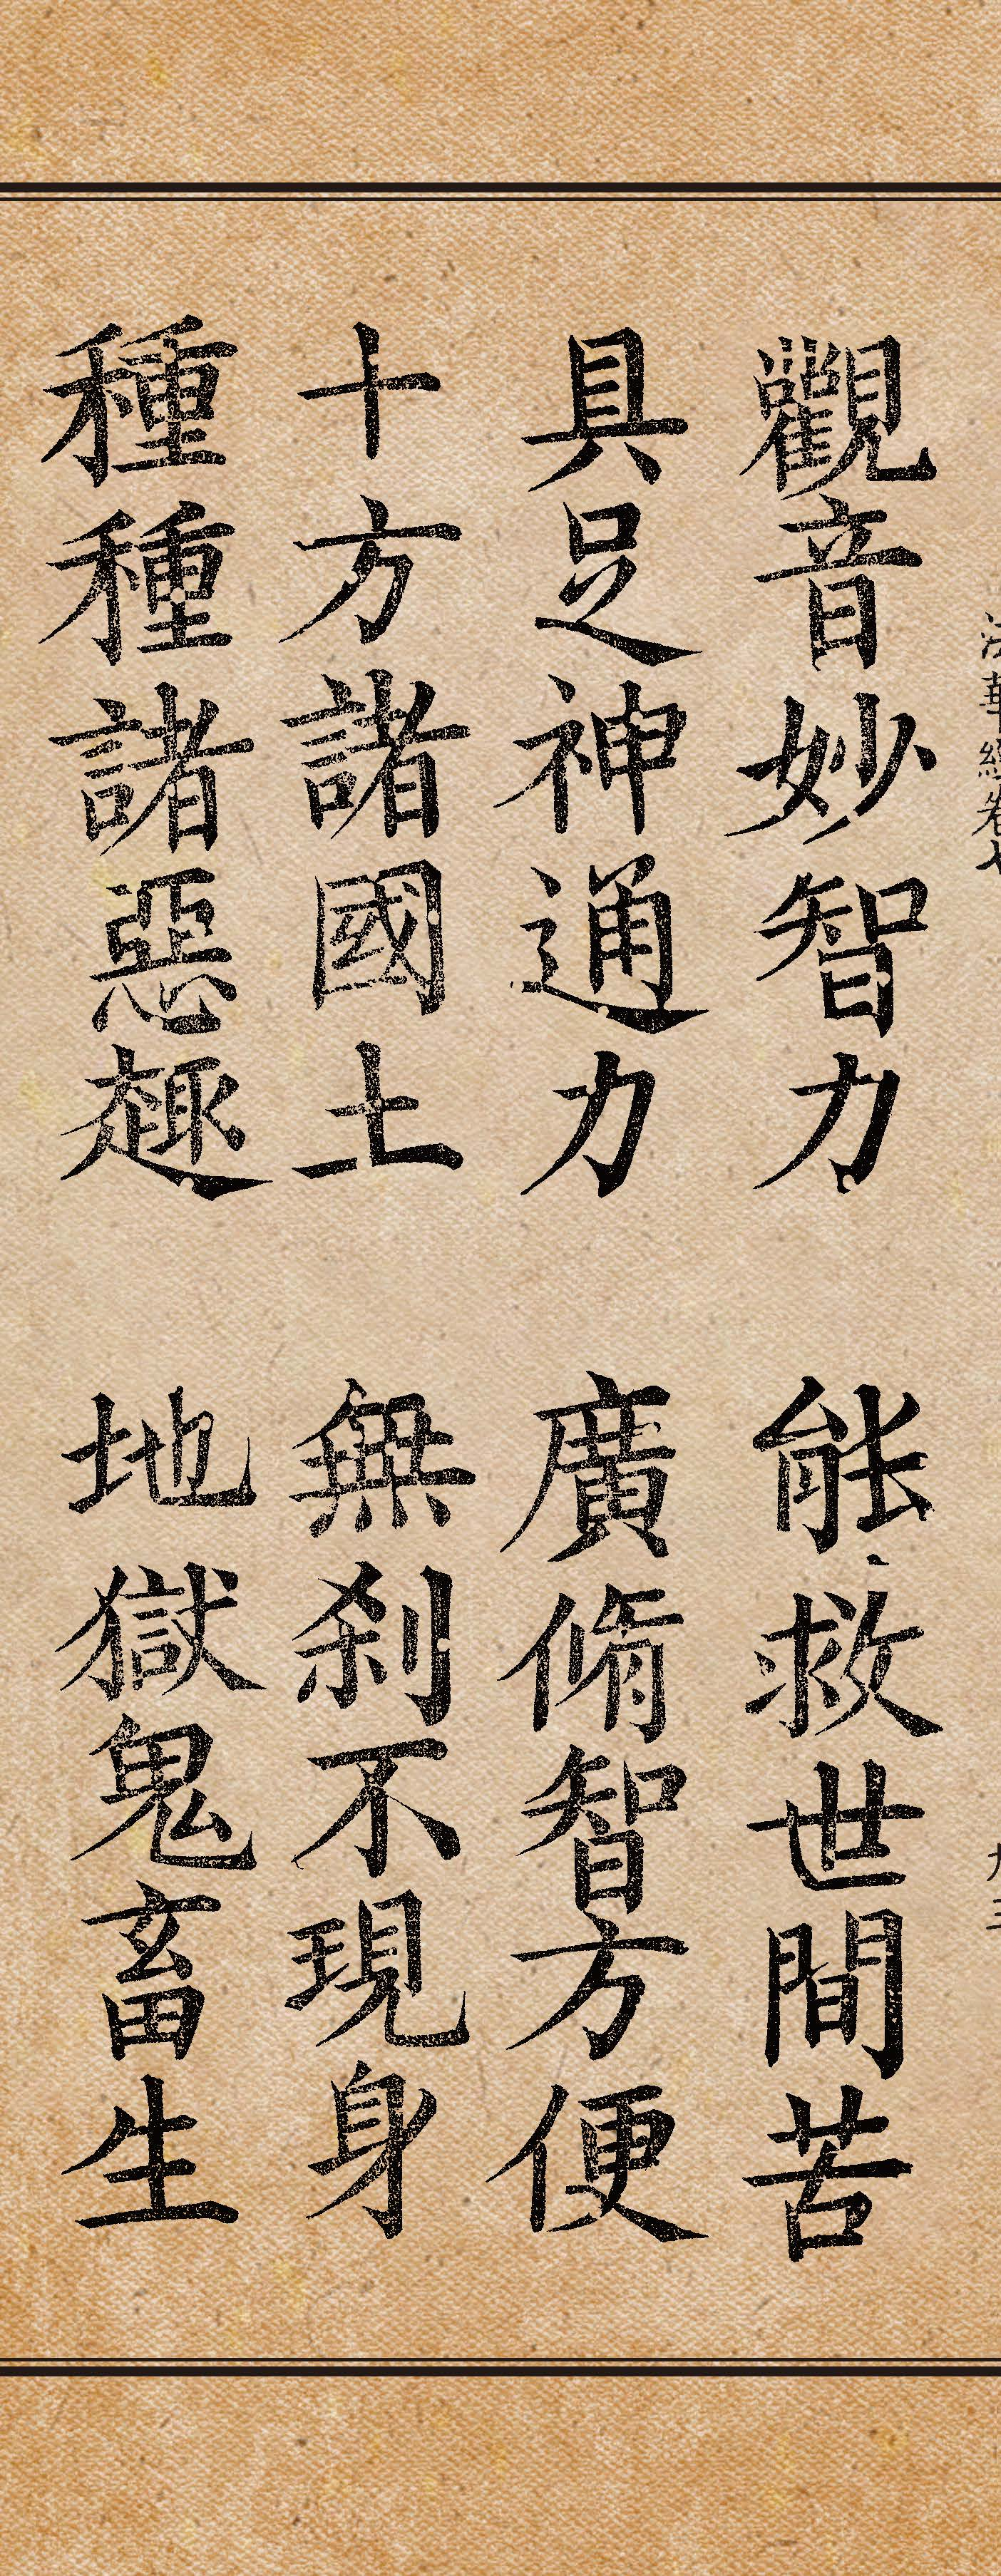 法華經卷七
觀音妙智力　能救世間苦
具足神通力　廣脩智方便
十方諸國土　無刹不現身
種種諸惡趣　地獄鬼畜生